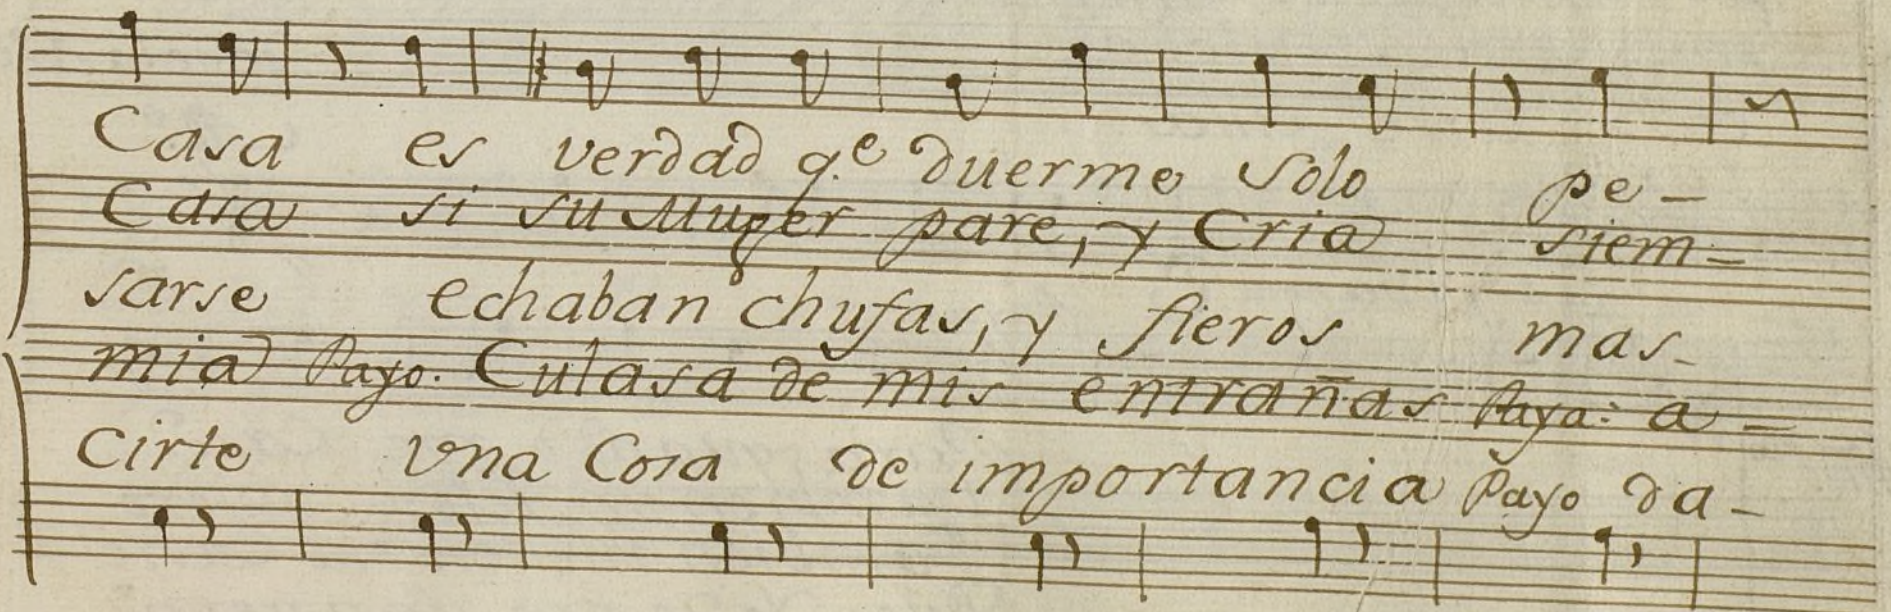 Casa es verdad q.e duerme solo pe-
Casa si su Muger pare, y Cria siem-
sarse echaban chufas, y fieros mas-
mia Payo. Culasa de mis entrañas Paya: a-
cirte vna Cosa de importancia Payo da-